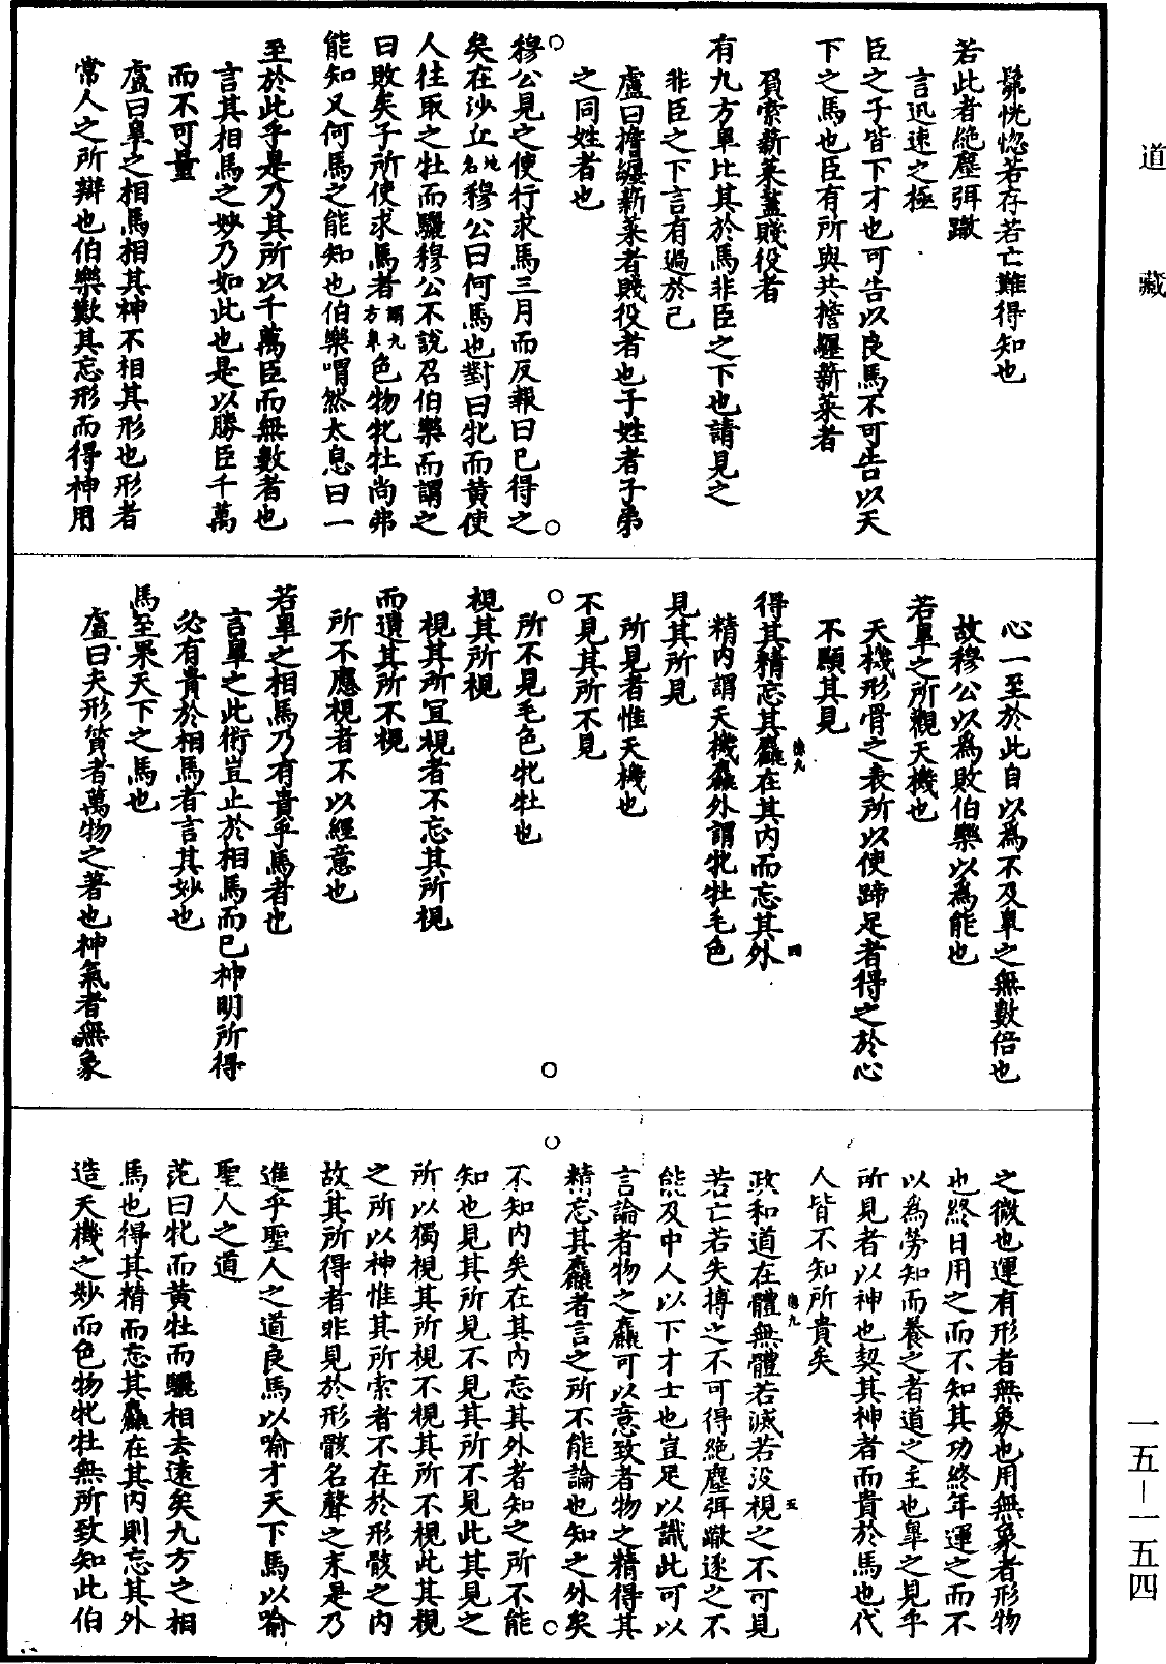 道藏
髴恍惚若存若亡難得知也
若此者絶塵弭𨅊
言迅速之極
臣之子皆下才也可告以良馬不可告以天
下之馬也臣有所與共擔纆薪菜者
負索薪菜蓋賤役者
有九方臯比其於馬非臣之下也請見之
非臣之下言有過於己
盧曰擔纆薪菜者賤役者也子姓者子弟
之同姓者也
穆公見之使行求馬三月而反報曰已得之
矣在沙丘地名穆公曰何馬也對曰牝而黄使
人往取之牡而驪穆公不說召伯樂而謂之
曰敗矣子所使求馬者謂九方臯色物牝牡尚弗
能知又何馬之能知也伯樂喟然太息曰一
至於此乎是乃其所以千萬臣而無數者也
言其相馬之妙乃如此也是以勝臣千萬
而不可量
盧曰臯之相馬相其神不相其形也形者
常人之所辯也伯樂歎其忘形而得神用
心一至於此自以爲不及臯之無數倍也
故穆公以爲敗伯樂以爲能也
若臯之所觀天機也
天機形骨之表所以使蹄足者得之於心
不顯其見
得其精忘其麤在其内而忘其外
精内謂天機麤外謂牝牡毛色
見其所見
所見者惟天機也
不見其所不見
所不見毛色牝牡也
視其所視
視其所宜視者不忘其所視
而遺其所不視
所不應視者不以經意也
若臯之相馬乃有貴乎馬者也
言臯之此術豈止於相馬而已神明所得
必有貴於相馬者言其妙也
馬至果天下之馬也
盧曰夫形質者萬物之著也神氣者無象
之微也運有形者無象也用無象者形物
也終日用之而不知其功終年運之而不
以爲勞知而養之者道之主也臯之見乎
所見者以神也契其神者而貴於馬也代
人皆不知所貴矣
政和道在體無體若滅若没視之不可見
若亡若失搏之不可得絶塵弭𨅊逐之不
能及中人以下才士也豈足以識此可以
言論者物之麤可以意致者物之精得其
精忘其麤者言之所不能論也知之外矣
不知内矣在其内忘其外者知之所不能
知也見其所見不見其所不見此其見之
所以獨視其所視不視其所不視此其視
之所以神惟其所索者不在於形骸之内
故其所得者非見於形骸名聲之末是乃
進乎聖人之道良馬以喻才天下馬以喻
聖人之道
范曰牝而黄牡而驪相去遠矣九方之相
馬也得其精而忘其麤在其内則忘其外
造天機之妙而色物牝牡無所致知此伯
一五—一五四